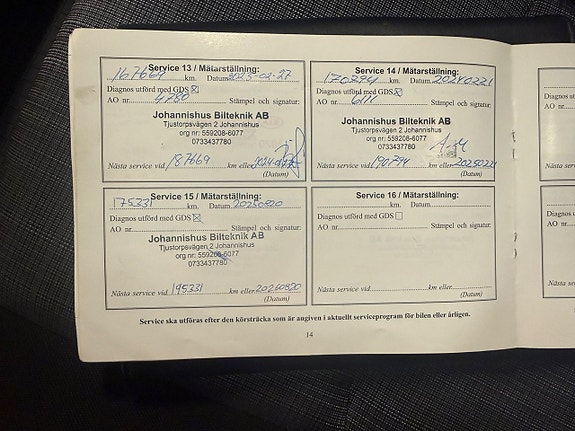 Service 13 / Mätarställning:
167669 km. Datum 2023-02-27
Diagnos utförd med GDS ☒
AO nr. 4788 Stämpel och signatur:
Johannishus Bilteknik AB
Tjustorpsvägen 2 Johannishus
org nr: 559208-6077
0733437780
Nästa service vid 187669 km eller
(Datum)
Service 14 / Mätarställning:
170794 km. Datum 20240221
Diagnos utförd med GDS ☒
AO nr. Stämpel och signatur:
Johannishus Bilteknik AB
Tjustorpsvägen 2 Johannishus
org nr: 559208-6077
0733437780
Nästa service vid 190794 km eller 20250221
(Datum)
Service 15 / Mätarställning:
175331 km. Datum 20250820
Diagnos utförd med GDS ☒
AO nr. Stämpel och signatur:
Johannishus Bilteknik AB
Tjustorpsvägen 2 Johannishus
org nr: 559208-6077
0733437780
Nästa service vid 195331 km eller 20260820
(Datum)
Service 16 / Mätarställning:
km. Datum
Diagnos utförd med GDS ☐
AO nr. Stämpel och signatur:
Nästa service vid km eller
(Datum)
Service ska utföras efter den körsträcka som är angiven i aktuellt serviceprogram för bilen eller årligen.
14